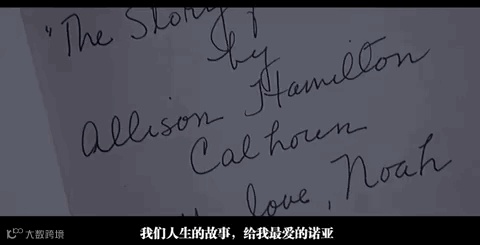 "The Story
by
Allison Hamilton
Calhoun
love, Noah
大数跨境
我们人生的故事，给我最爱的诺亚